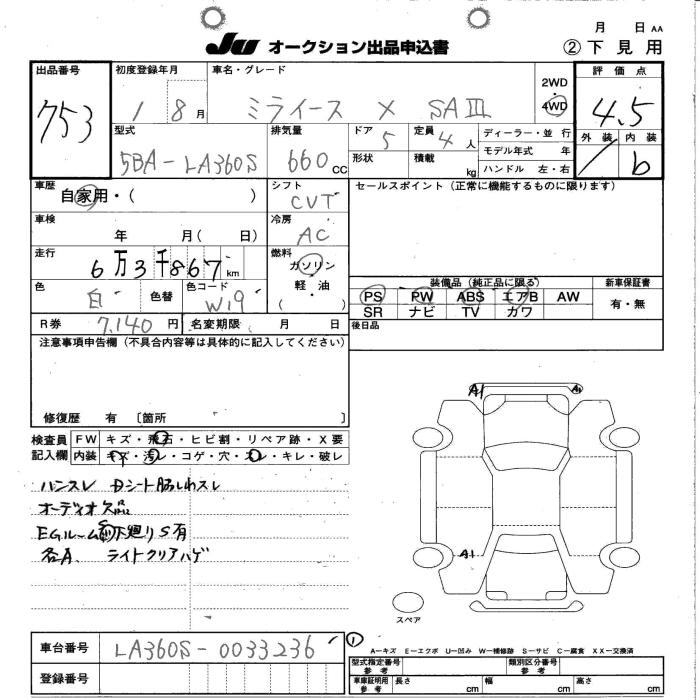 月 日 AA
JU オークション出品申込書 ②下見用
出品番号 初度登録年月 車名・グレード 2WD・4WD 評価点
753 1 8月 ミライース X SAⅢ 4.5
型式 排気量 ドア 定員 ディーラー・並行 外装 内装
5BA-LA360S 660cc 5 4人 モデル年式 年 b
形状 積載 kg ハンドル 左・右
車歴 自家用・( ) シフト CVT セールスポイント(正常に機能するものに限ります)
車検 年 月( 日) 冷房 AC
走行 6万3千867km 燃料 ガソリン 軽油・
装備品(純正品に限る) 新車保証書
色 白 色替 色コード W19 PS PW ABS エアB AW 有・無
SR ナビ TV カワ
R券 7,140円 名変期限 月 日 後日品
注意事項申告欄(不具合内容等は具体的に記入してください)
修復歴 有 [箇所 ]
検査員記入欄 FW キズ・飛石・ヒビ割・リペア跡・X要
内装 キズ・汚レ・コゲ・穴・スレ・キレ・破レ
A1 A1
ハンスレ Dシート脇しわスレ
オーディオ欠品
EGルーム 下廻りS有
各A. ライトクリアハゲ
A1
スペア
車台番号 LA360S-0033236 ①
A-キズ E-エクボ U-凹み W-補修跡 S-サビ C-腐食 XX-交換済
登録番号 型式指定番号 参考 類別区分番号 参考
車庫証明用 参考 長さ cm 幅 cm 高さ cm